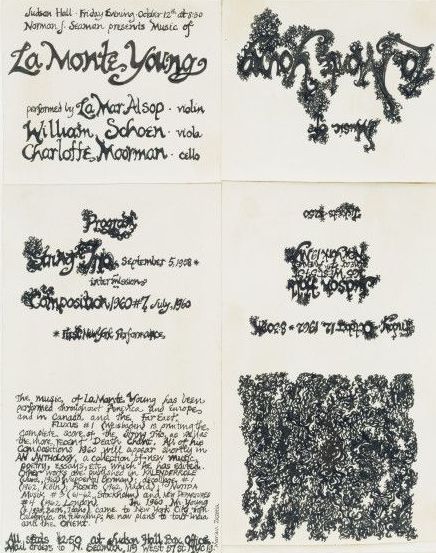 Judson Hall · Friday Evening · October 12th at 8:30
Norman J. Seaman presents Music of
La Monte Young
performed by La Mar Alsop · violin
William Schoen · viola
Charlotte Moorman · cello
Music of
La Monte Young
Program
String Trio, September 5, 1958 *
intermission
Composition 1960 #7, July, 1960
* First New York Performance
Tickets $2.50
Judson Hall
165 West 57 St
New York 19, NY
Friday October 12, 1962 · 8:30 PM
The music of La Monte Young has been
performed throughout America and Europe
and in Canada and the Far East.
FLUXUS #1 (Wiesbaden) is printing the
complete score of the String Trio as well as
the more recent "Death Chant". All of his
Compositions 1960 will appear shortly in
AN ANTHOLOGY, a collection of new music,
poetry, essays, etc., which he has edited.
Other works are published in KALENDERROLLE
(1962, Wuppertal, Germany);
Musik #3 (Stockholm) and
#4 (1962, London). In 1960 Mr. Young
came to New York City from
California on
and the Orient.
All seats $2.50 at Judson Hall Box Office
Mail orders to N. Seaman, 119 West 57 St. NYC 19